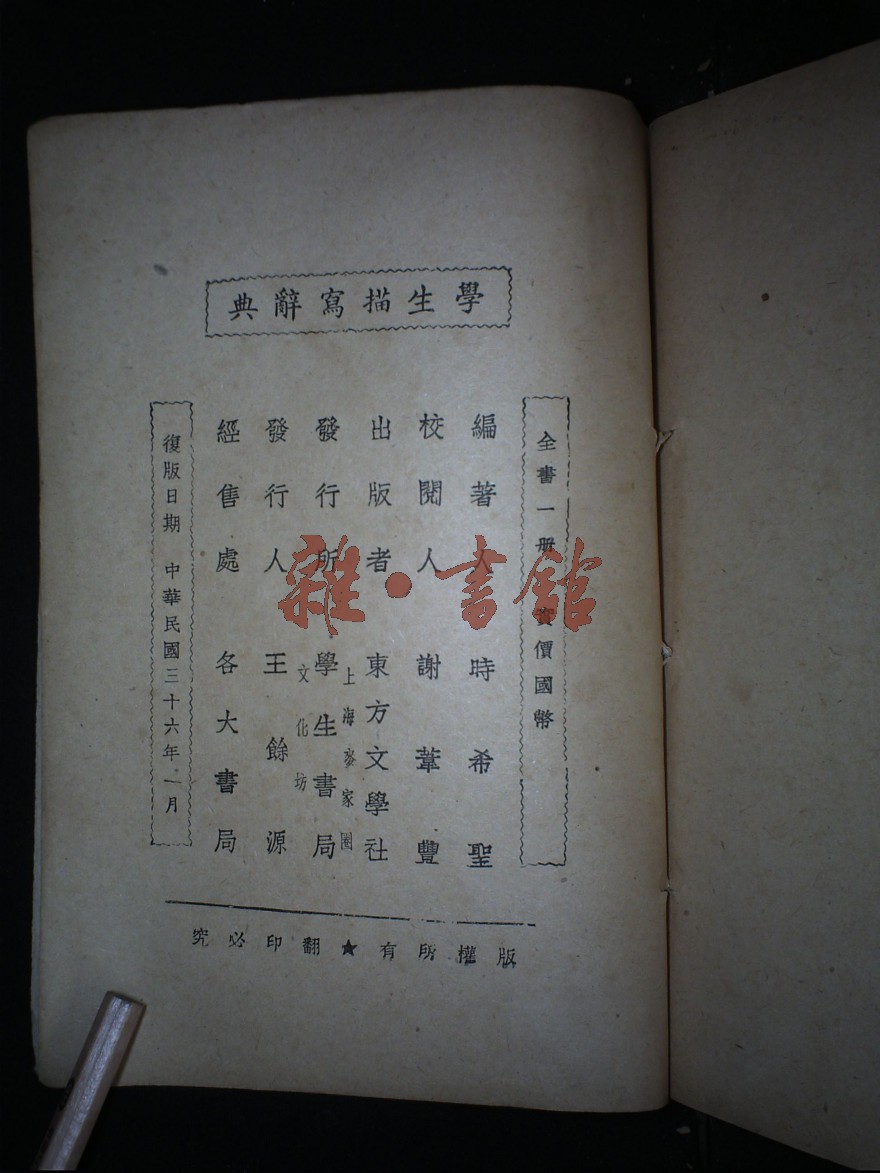 學生描寫辭典
全書一册 實價國幣
編著人 時希聖
校閱人 謝葦豐
出版者 東方文學社
發行所 學生書局
上海麥家圈
文化坊
發行人 王餘源
經售處 各大書局
復版日期 中華民國三十六年一月
版權所有★翻印必究
雜·書館